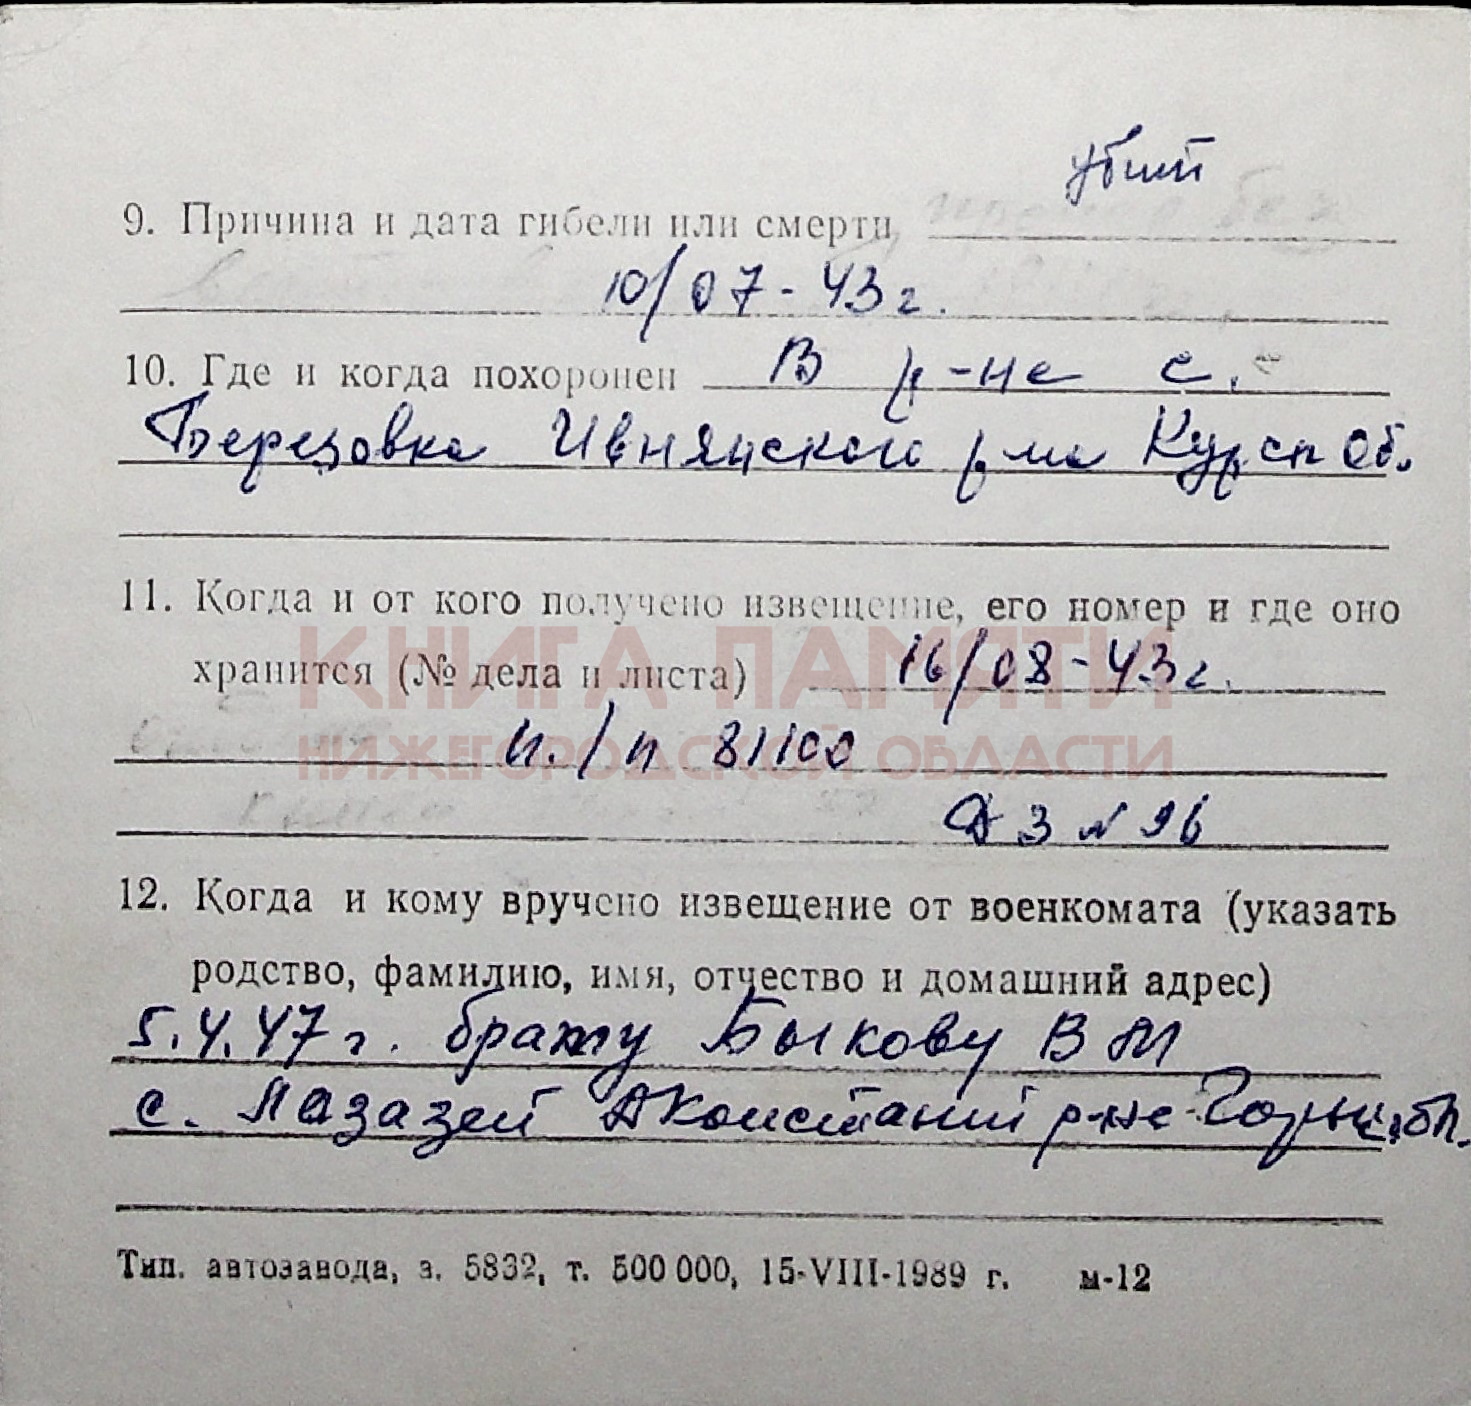 убит
9. Причина и дата гибели или смерти
10/07-43 г.
10. Где и когда похоронен В р-не с.
Березовка Ивнянского р-на Курск об.
11. Когда и от кого получено извещение, его номер и где оно
хранится (№ дела и листа) 16/08-43 г.
КНИГА ПАМЯТИ
НИЖЕГОРОДСКОЙ ОБЛАСТИ
п./п 81100
Д 3 N 96
12. Когда и кому вручено извещение от военкомата (указать
родство, фамилию, имя, отчество и домашний адрес)
5.4.47 г. брату Быкову В М
с. Лазазей ДКонстаний р-не Горьк.обл.
Тип. автозавода, з. 5832, т. 500 000, 15-VIII-1989 г. м-12